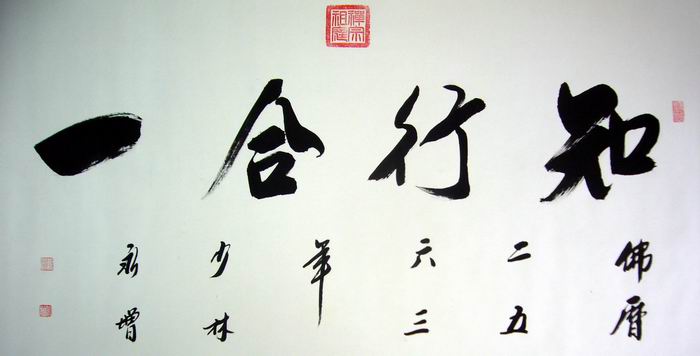 禪宗祖庭
知行合一
佛曆二五六三年少林永增